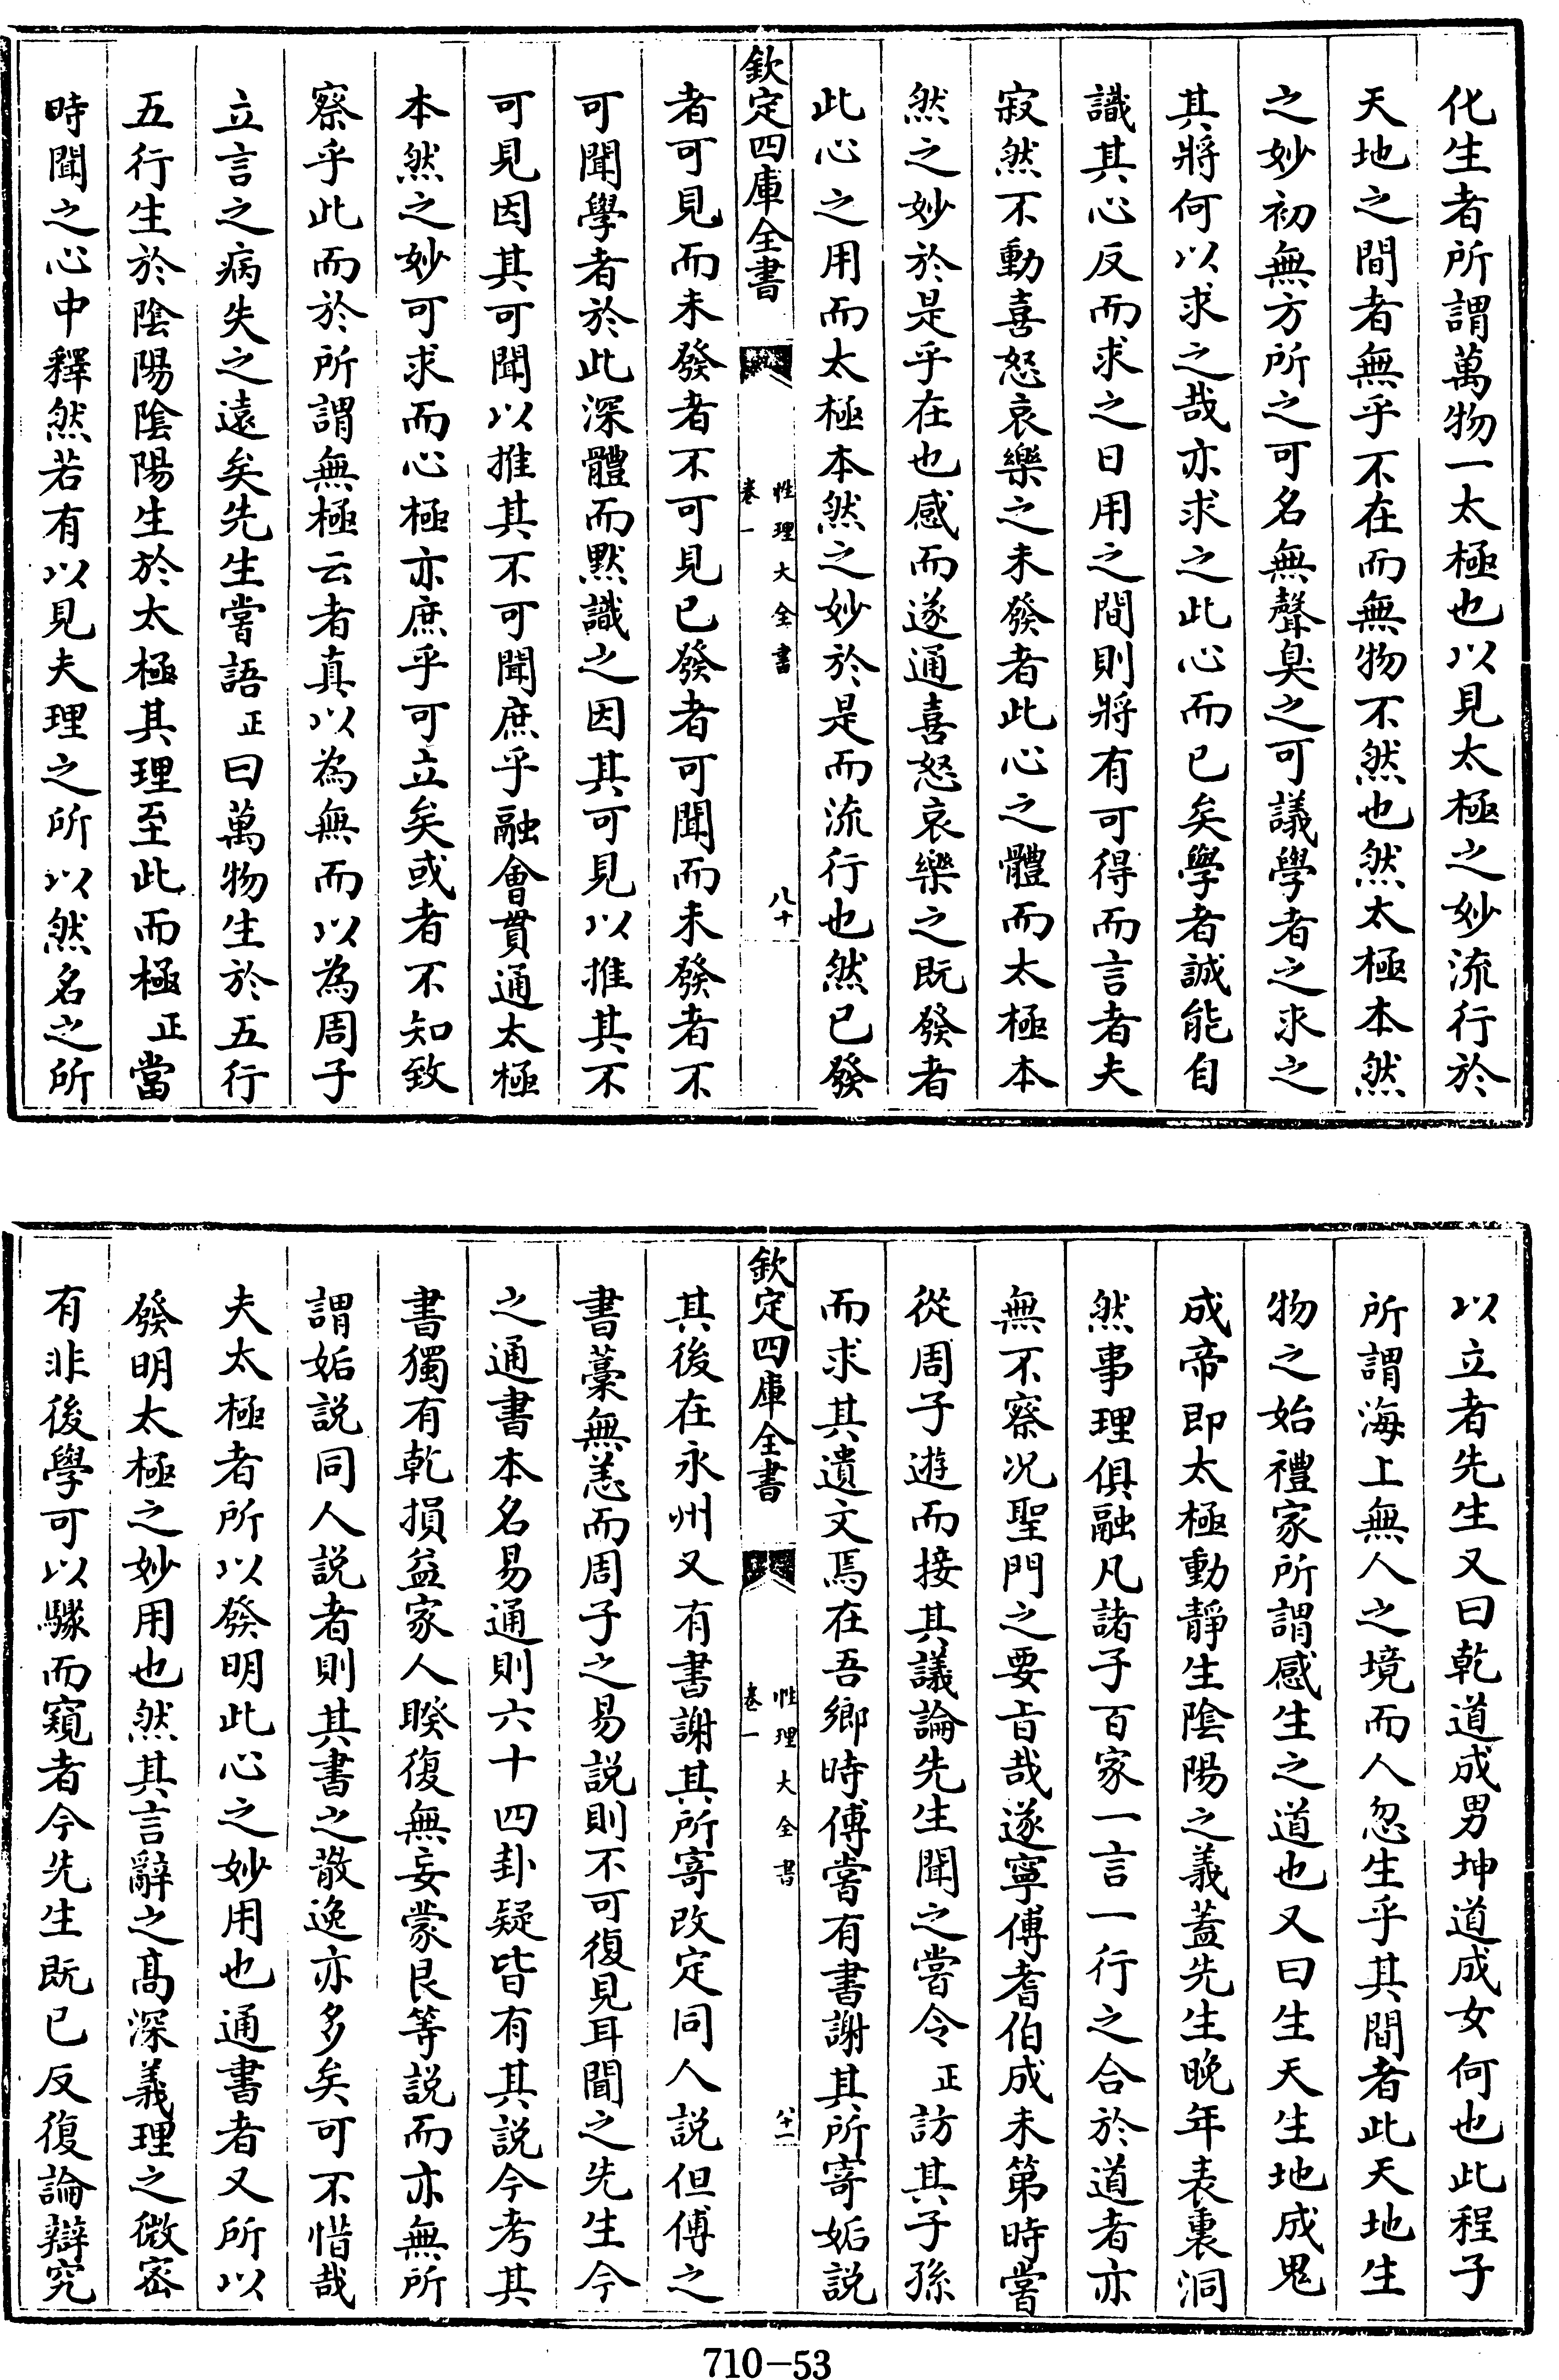 化生者所謂萬物一太極也以見太極之妙流行於
天地之間者無乎不在而無物不然也然太極本然
之妙初無方所之可名無聲臭之可議學者之求之
其將何以求之哉亦求之此心而已矣學者誠能自
識其心反而求之日用之間則將有可得而言者夫
寂然不動喜怒哀樂之未發者此心之體而太極本
然之妙於是乎在也感而遂通喜怒哀樂之既發者
此心之用而太極本然之妙於是而流行也然已發
欽定四庫全書
性理大全書
卷一
八十
者可見而未發者不可見已發者可聞而未發者不
可聞學者於此深體而默識之因其可見以推其不
可見因其可聞以推其不可聞庶乎融會貫通太極
本然之妙可求而心極亦庶乎可立矣或者不知致
察乎此而於所謂無極云者真以為無而以為周子
立言之病失之遠矣先生嘗語正曰萬物生於五行
五行生於陰陽陰陽生於太極其理至此而極正當
時聞之心中釋然若有以見夫理之所以然名之所
以立者先生又曰乾道成男坤道成女何也此程子
所謂海上無人之境而人忽生乎其間者此天地生
物之始禮家所謂感生之道也又曰生天生地成鬼
成帝即太極動靜生陰陽之義蓋先生晚年表裏洞
然事理俱融凡諸子百家一言一行之合於道者亦
無不察况聖門之要旨哉遂寧傅耆伯成未第時嘗
從周子遊而接其議論先生聞之嘗令正訪其子孫
而求其遺文焉在吾鄉時傅嘗有書謝其所寄姤說
欽定四庫全書
性理大全書
卷一
八十一
其後在永州又有書謝其所寄改定同人説但傅之
書藁無恙而周子之易説則不可復見耳聞之先生今
之通書本名易通則六十四卦疑皆有其説今考其
書獨有乾損益家人睽復無妄蒙艮等説而亦無所
謂姤説同人説者則其書之散逸亦多矣可不惜哉
夫太極者所以發明此心之妙用也通書者又所以
發明太極之妙用也然其言辭之高深義理之微密
有非後學可以驟而窺者今先生既已反復論辯究
710-53